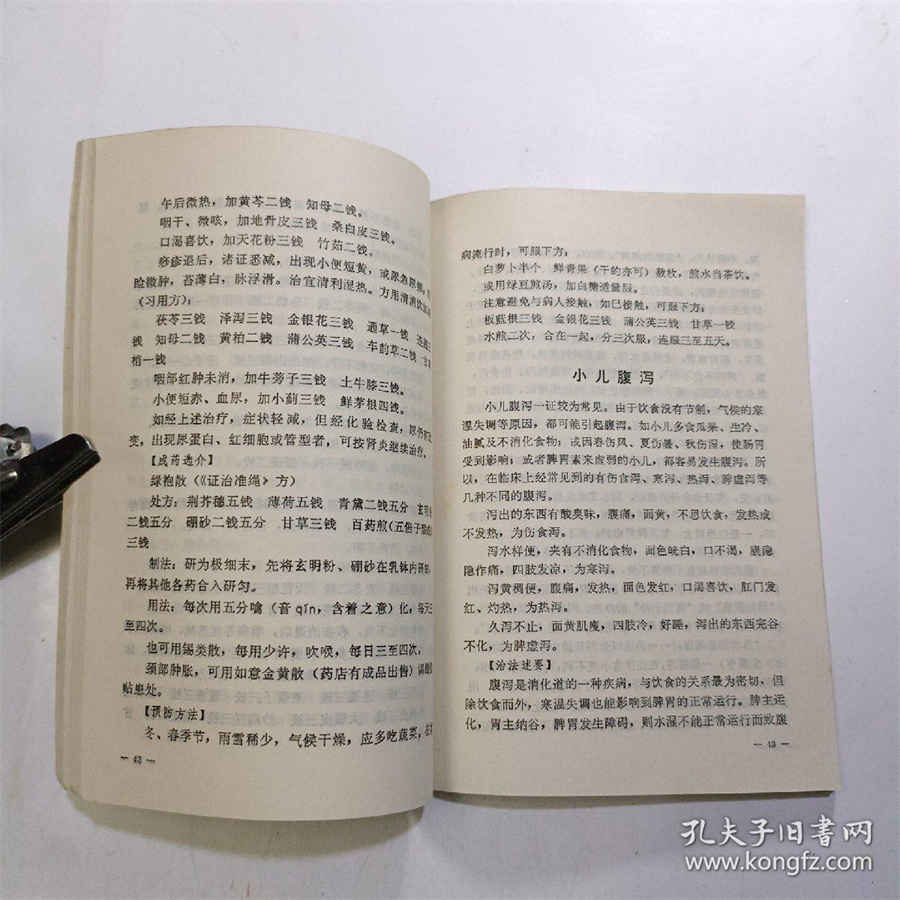 午后微热，加黄芩二钱　知母二钱。
咽干、微咳，加地骨皮三钱　桑白皮三钱。
口渴喜饮，加天花粉三钱　竹茹二钱。
疹疹退后，诸证悉减，出现小便短黄，或尿
脸微肿，苔薄白，脉浮滑。治宜清利湿热。方用清
（习用方）：
茯苓三钱　泽泻三钱　金银花三钱　通草一钱　连
钱　知母二钱　黄柏二钱　蒲公英三钱　车前草二钱
梢一钱
咽部红肿未消，加牛蒡子三钱　土牛膝三钱。
小便短赤、血尿，加小蓟三钱　鲜茅根四钱。
如经上述治疗，症状轻减，但经化验检查，尿
变，出现尿蛋白、红细胞或管型者，可按肾炎继续治疗。
【成药选介】
绿袍散（《证治准绳》方）
处方：荆芥穗五钱　薄荷五钱　青黛二钱五分　玄明
二钱五分　硼砂二钱五分　甘草三钱　百药煎（五倍子
三钱
制法：研为极细末，先将玄明粉、硼砂在乳钵内研
再将其他各药合入研匀。
用法：每次用五分噙（音qín，含着之意）化，每天三
至四次。
也可用锡类散，每用少许，吹喉，每日三至四次，
颈部肿胀，可用如意金黄散（药店有成品出售）调
贴患处。
【预防方法】
冬、春季节，雨雪稀少，气候干燥，应多吃蔬菜，在
— 42 —
病流行时，可服下方：
白萝卜半个　鲜青果（干的亦可）数枚，煎水当茶饮。
或用绿豆煎汤，加白糖适量服。
注意避免与病人接触，如已接触，可服下方：
板蓝根三钱　金银花三钱　蒲公英三钱　甘草一钱
水煎二次，合在一起，分三次服，连服三至五天。
小儿腹泻
小儿腹泻一证较为常见。由于饮食没有节制，气候的寒
温失调等原因，都可能引起腹泻。如小儿多食瓜果、生冷、
油腻及不消化食物；或因春伤风、夏伤暑、秋伤湿，使肠胃
受到影响；或者脾胃素来虚弱的小儿，都容易发生腹泻。所
以，在临床上经常见到的有伤食泻、寒泻、热泻、脾虚泻等
几种不同的腹泻。
泻出的东西有酸臭味，腹痛，面黄，不思饮食，发热或
不发热，为伤食泻。
泻水样便，夹有不消化食物，面色㿠白，口不渴，腹隐
隐作痛，四肢发凉，为寒泻。
泻黄稠便，腹痛，发热，面色发红，口渴喜饮，肛门发
红、灼热，为热泻。
久泻不止，面黄肌瘦，四肢冷，好睡，泻出的东西完谷
不化，为脾虚泻。
【治法述要】
腹泻是消化道的一种疾病，与饮食的关系最为密切，但
除饮食而外，寒温失调也能影响到脾胃的正常运行。脾主运
化，胃主纳谷，脾胃发生障碍，则水湿不能正常运行而致腹
— 43 —
孔夫子旧书网
www.kongfz.com